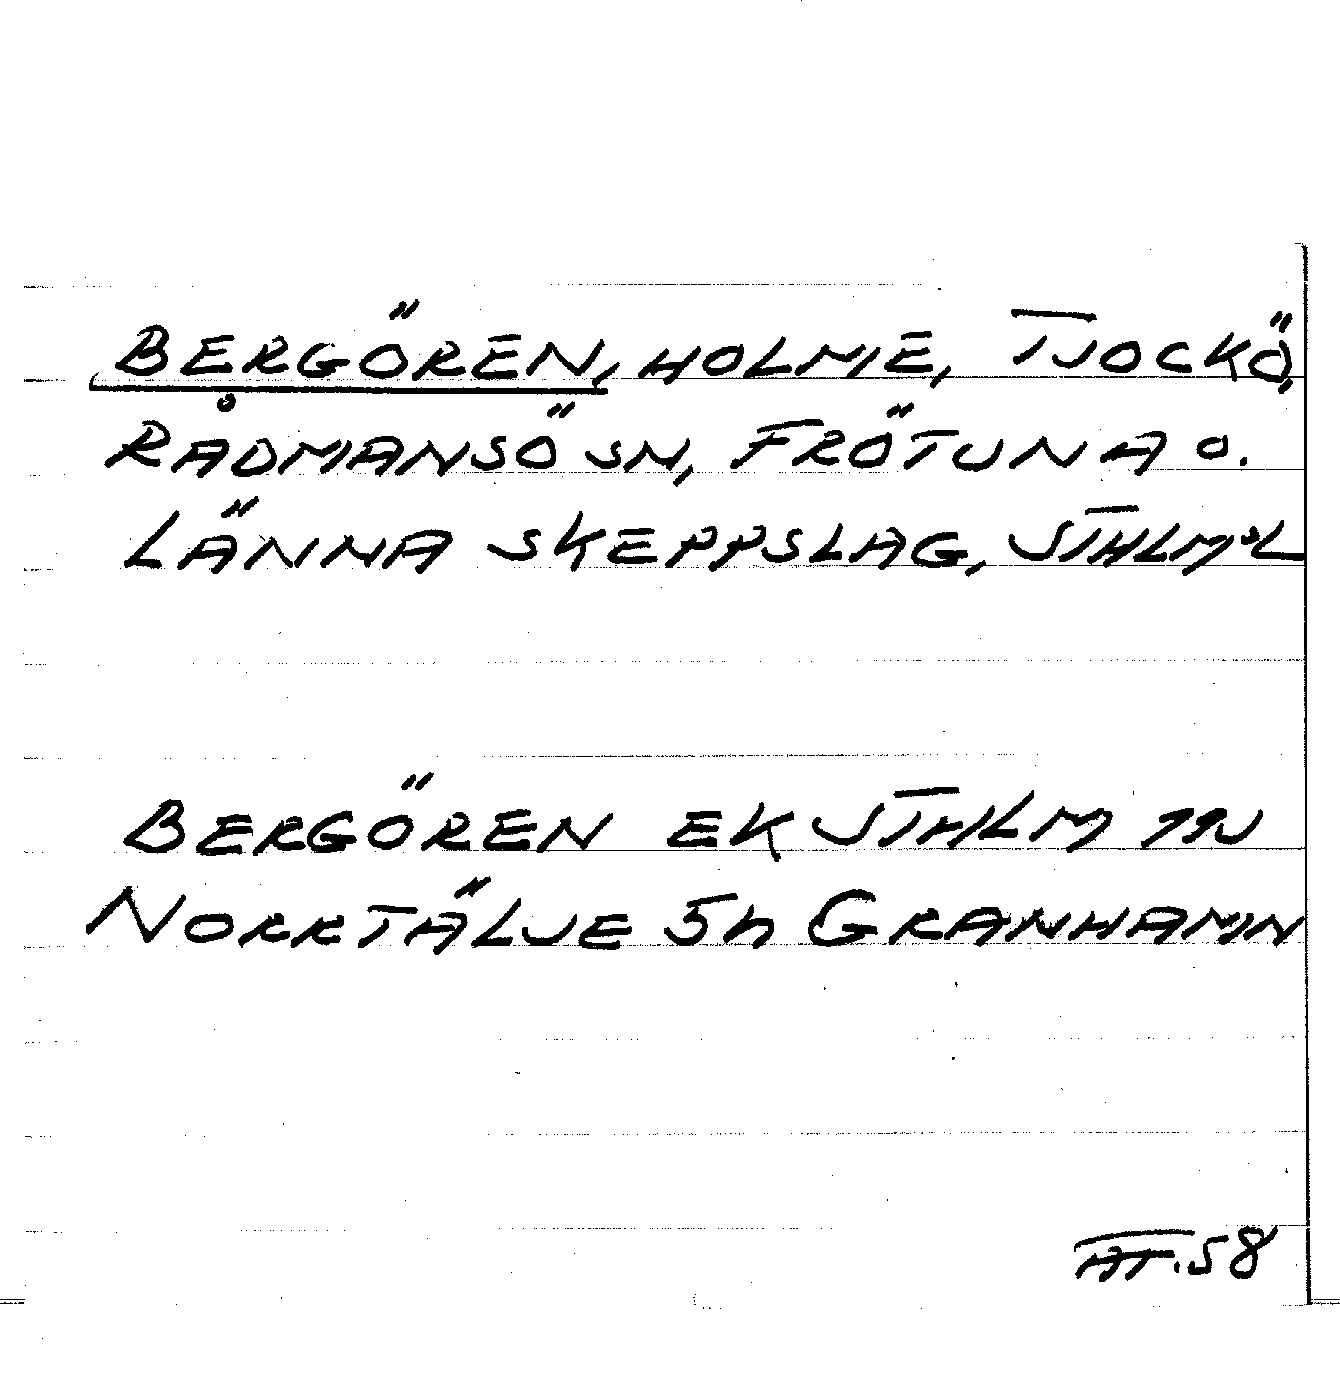 BERGÖREN, HOLME, TJOCKÖ,
RÅDMANSÖ SN, FRÖTUNA O.
LÄNNA SKEPPSLAG, STHLMS L
BERGÖREN EK STHLM
NORRTÄLJE 5h GRANHAMN
AT.58